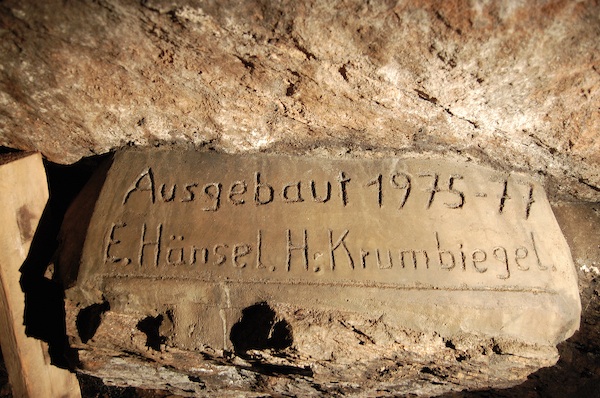 Ausgebaut 1975-77
E. Hänsel. H. Krumbiegel.